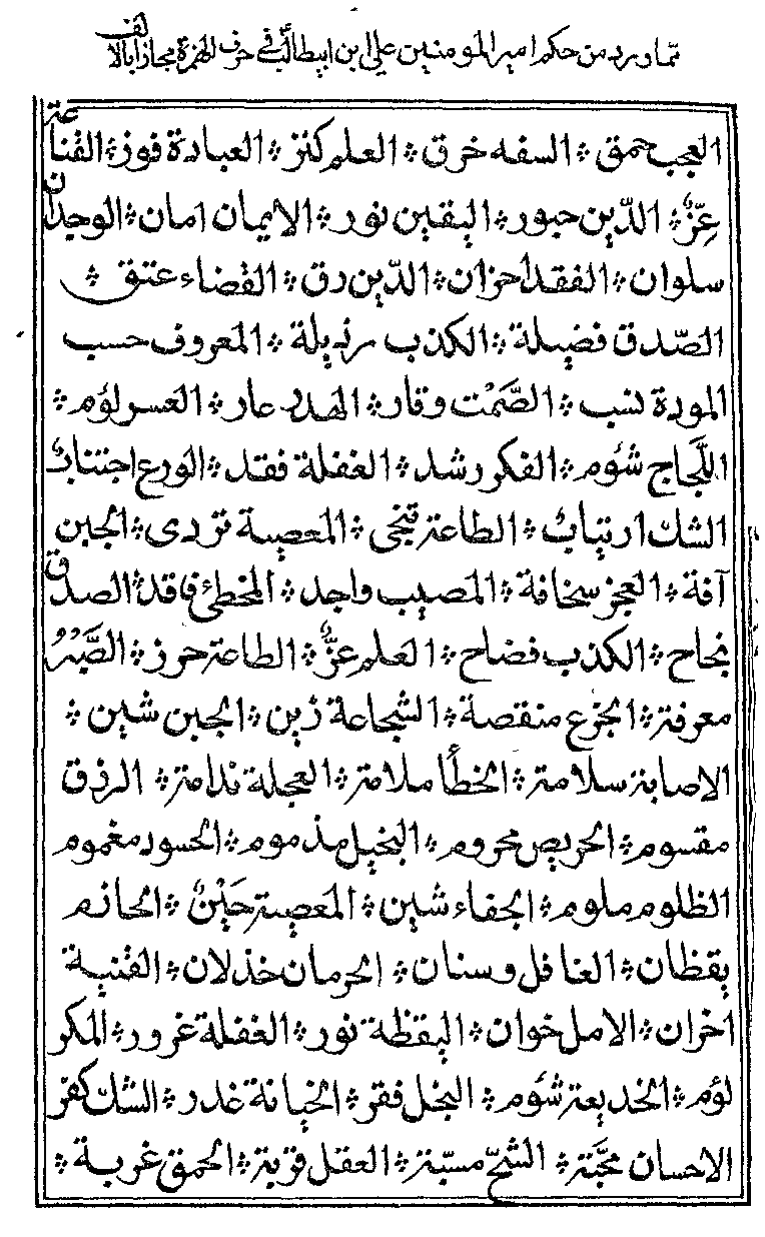 مما ورد من حكم امير المومنين علي ابن ابيطالب في حرف الهمزة مجازا بالالف
العجب حمق ؞ السفه خرق ؞ العلم كنز ؞ العبادة فوز ؞ القناعة
عِزٌّ ؞ الدّين حبور ؞ اليقين نور ؞ الايمان امان ؞ الوجدان
سلوان ؞ الفقد احزان ؞ الدّين رق ؞ القضاء عتق ؞
الصّدق فضيلة ؞ الكذب رذيلة ؞ المعروف حسب
المودة نسب ؞ الصَّمْت وقار ؞ الهذر عار ؞ العسر لؤم ؞
اللَّجاج شؤم ؞ الفكر رشد ؞ الغفلة فقد ؞ الورع اجتنابٌ
الشك ارتيابٌ ؞ الطاعة تنجي ؞ المعصية تردى ؞ الجبن
آفة ؞ العجز سخافة ؞ المصيب واجد ؞ المخطئ فاقد ؞ الصدق
نجاح ؞ الكذب فضاح ؞ العلم عِزٌّ ؞ الطاعة حرز ؞ الصَّبْرُ
معرفة ؞ الجزع منقصة ؞ الشجاعة زين ؞ الجبن شين ؞
الاصابة سلامة ؞ الخطأ ملامة ؞ العجلة ندامة ؞ الرزق
مقسوم ؞ الحريص محروم ؞ البخيل مذموم ؞ الحسود مغموم
الظلوم ملوم ؞ الجفاء شين ؞ المعصية حَيْنٌ ؞ الحازم
يقظان ؞ الغافل وسنان ؞ الحرمان خذلان ؞ القنية
احزان ؞ الامل خوان ؞ اليقظة نور ؞ الغفلة غرور ؞ المكر
لؤم ؞ الخديعة شؤم ؞ البخل فقر ؞ الخيانة غدر ؞ الشك كفر
الاحسان محبَّة ؞ الشحّ مسبّة ؞ العقل قربة ؞ الحمق غربة ؞